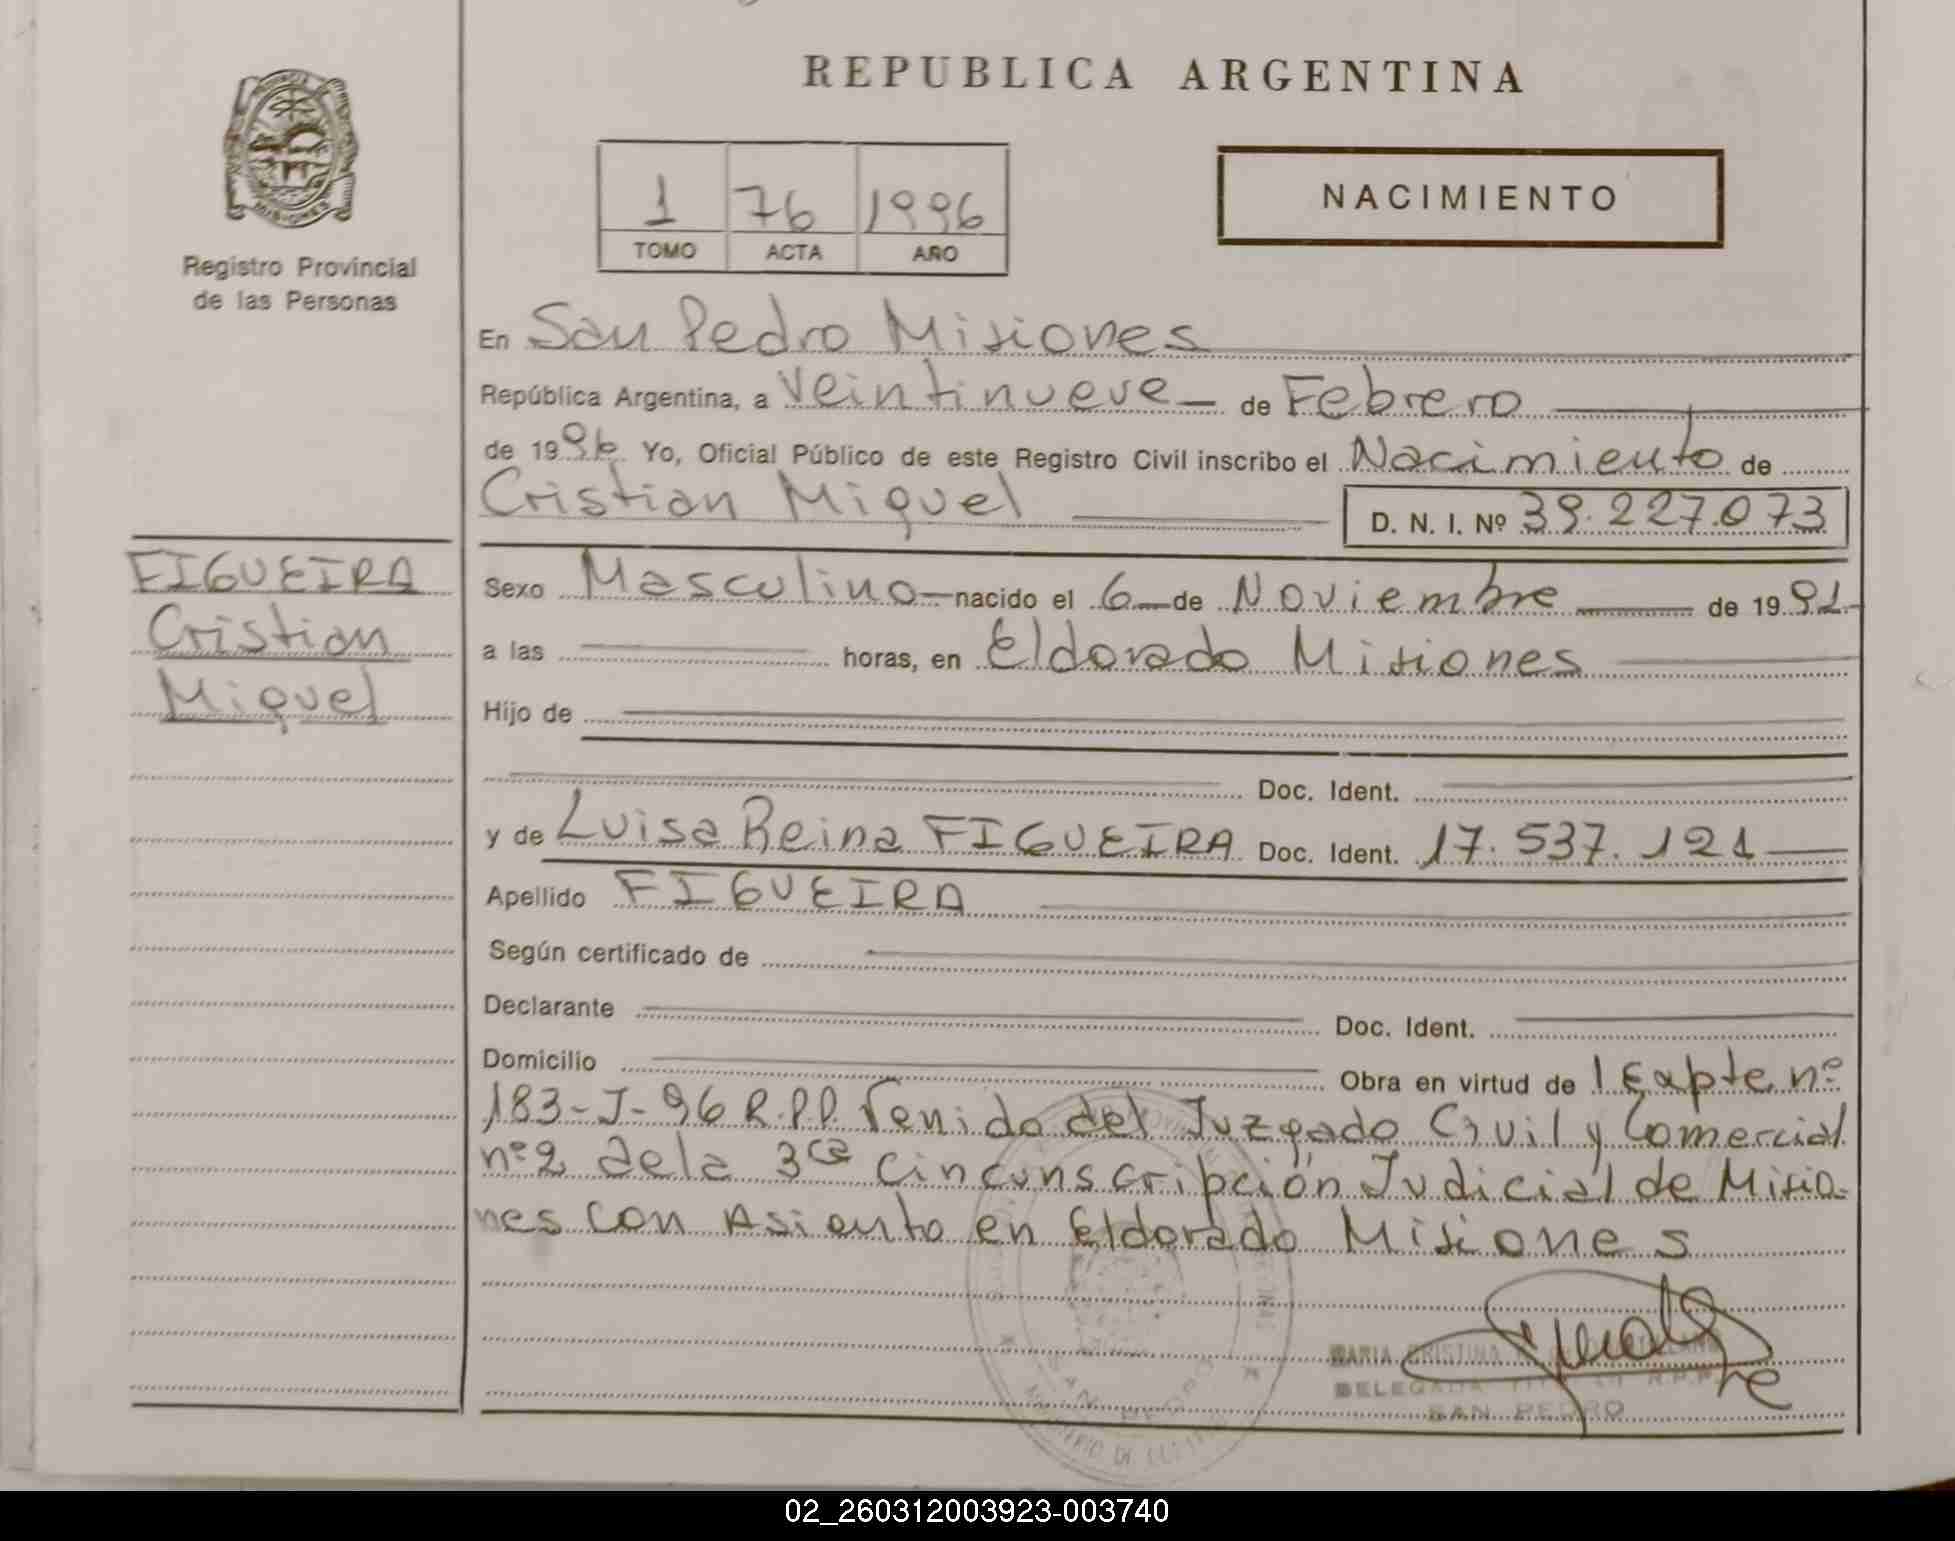 REPUBLICA ARGENTINA
1 76 1996
TOMO ACTA AÑO
NACIMIENTO
MISIONES
Registro Provincial
de las Personas
En San Pedro Misiones
República Argentina, a Veintinueve de Febrero
de 1996 Yo, Oficial Público de este Registro Civil inscribo el Nacimiento de
Cristian Miguel D. N. I. Nº 39.227.073
FIGUEIRA
Cristian
Miguel
Sexo Masculino nacido el 6 de Noviembre de 1991
a las horas, en Eldorado Misiones
Hijo de
Doc. Ident.
y de Luisa Reina FIGUEIRA Doc. Ident. 17.537.121
Apellido FIGUEIRA
Según certificado de
Declarante Doc. Ident.
Domicilio Obra en virtud de Expte nº
183-J-96 R.P.P. Venido del Juzgado Civil y Comercial
nº2 de la 3ra Circunscripción Judicial de Misio-
nes con Asiento en Eldorado Misiones
MARIA CRISTINA
DELEGADA R.P.P.
SAN PEDRO
SAN PEDRO
02_260312003923-003740